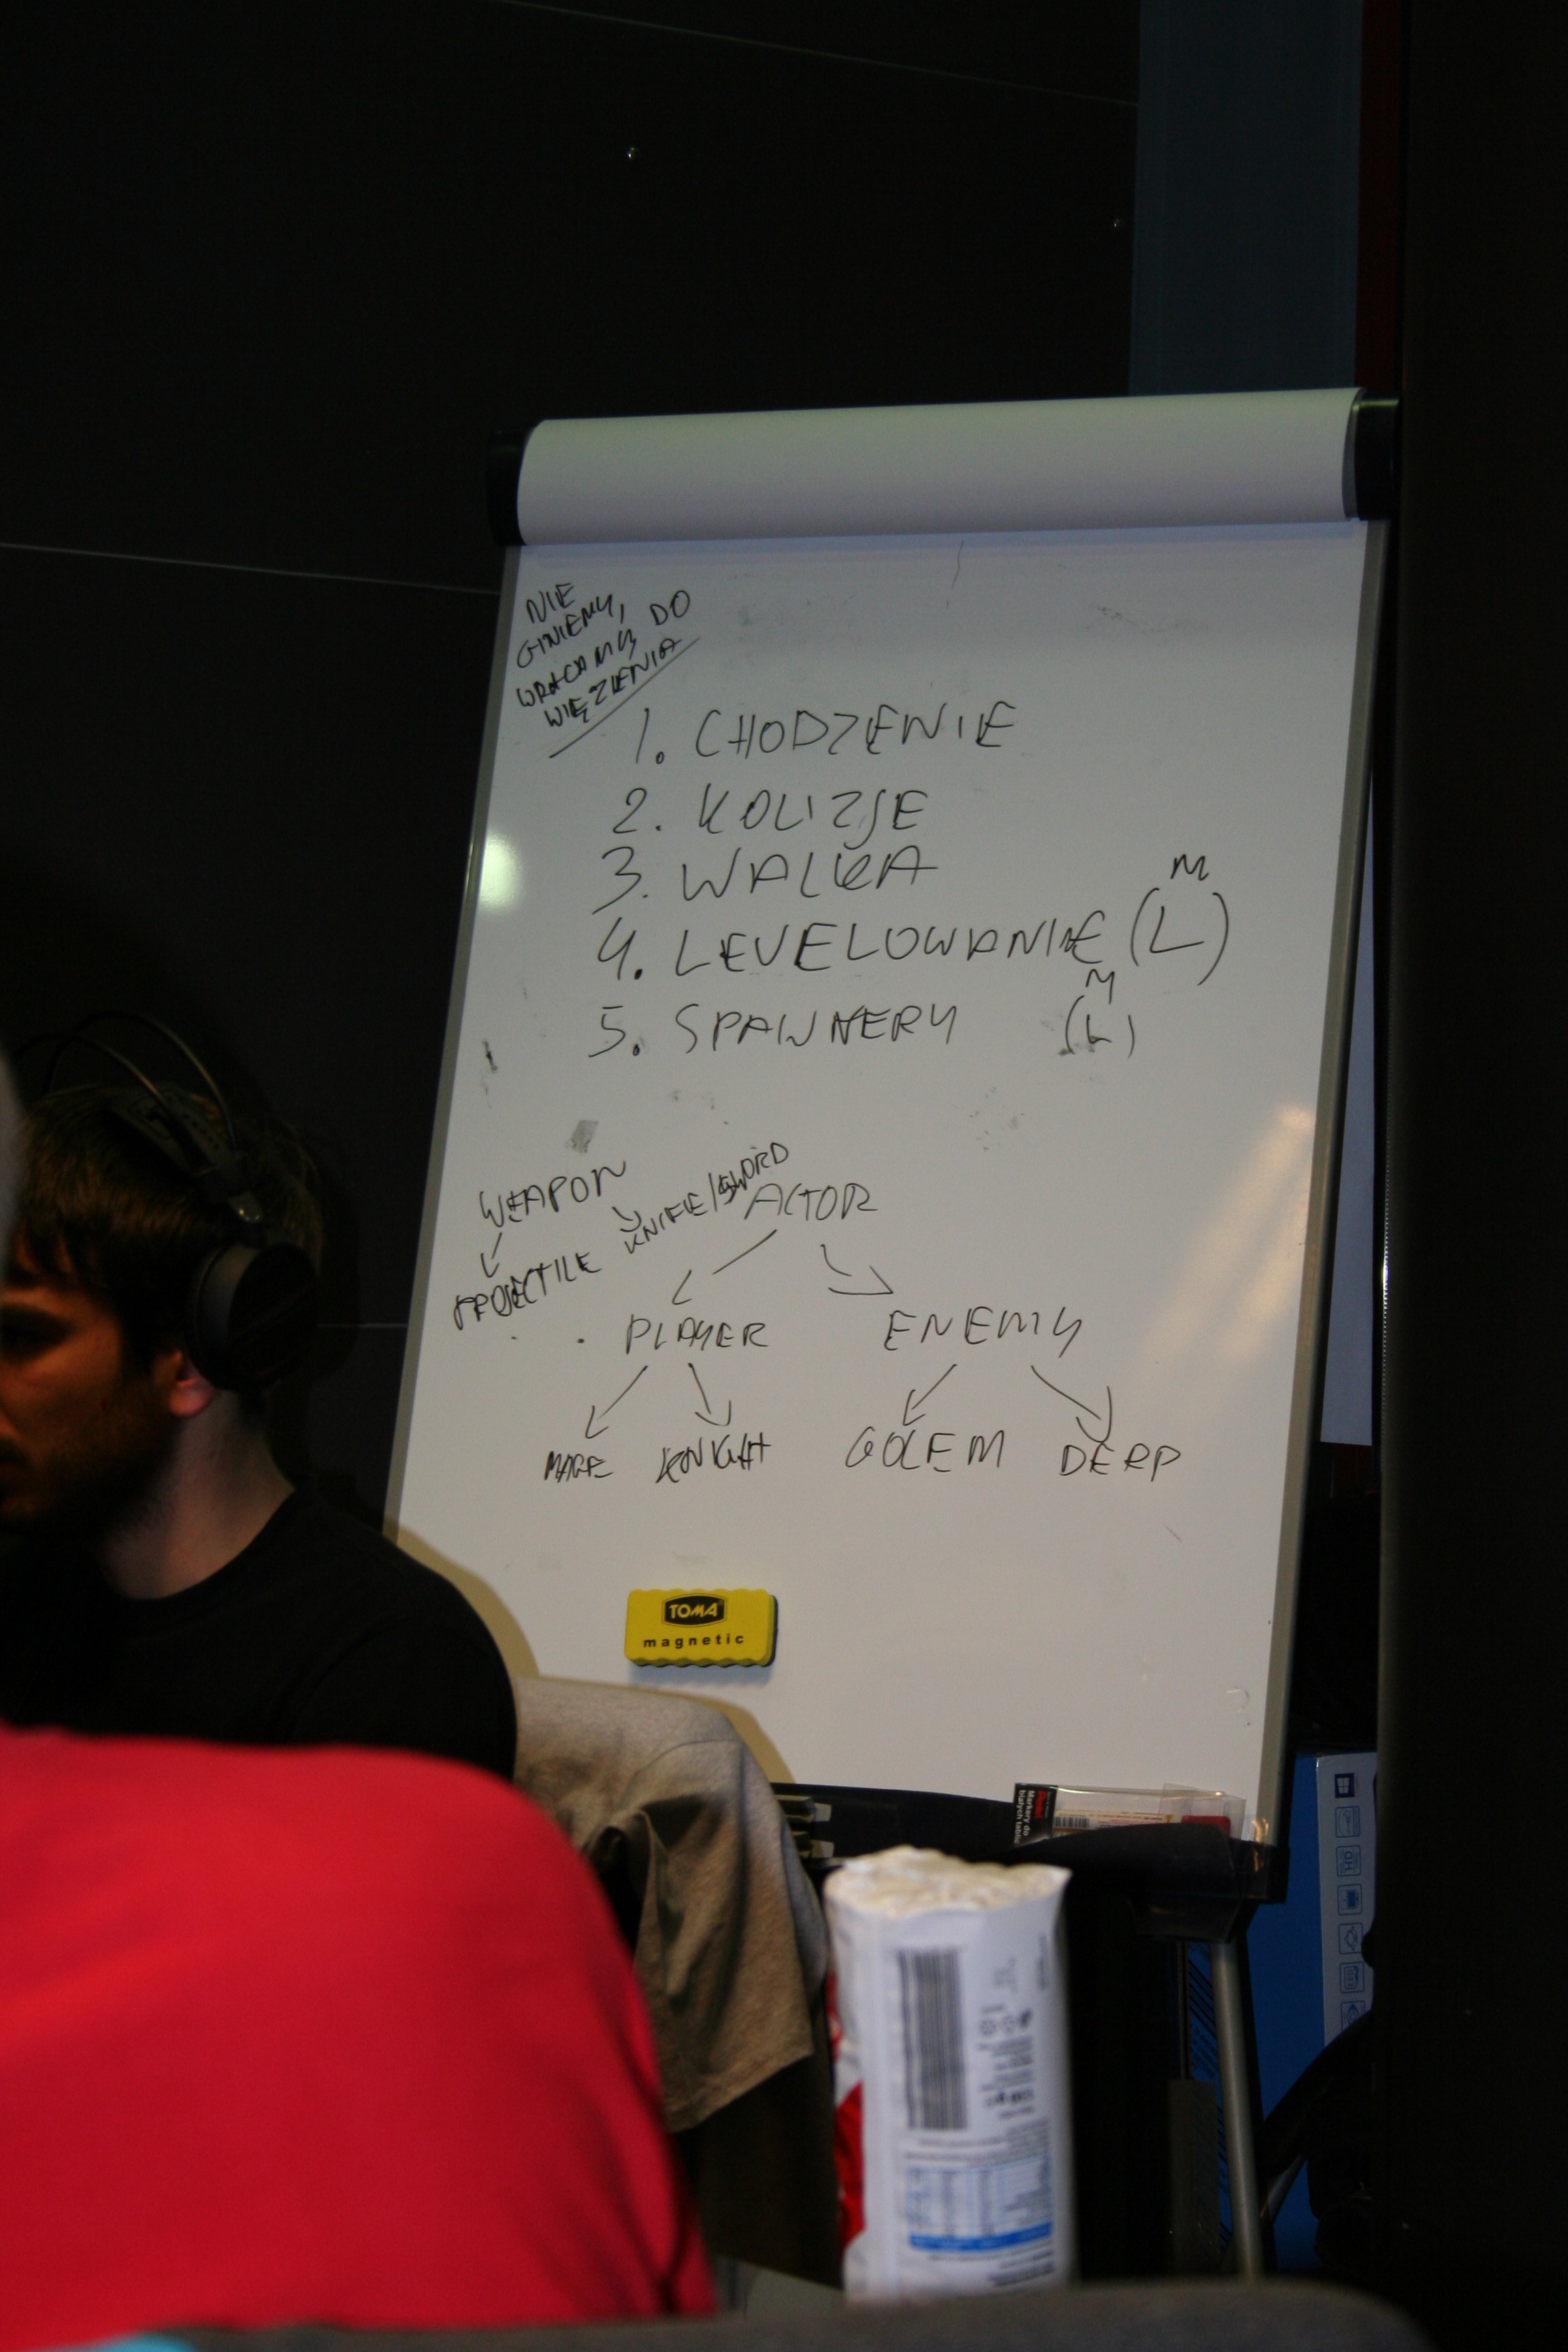 NIE
GINIEMY,
WRACAMY DO
WIĘZIENIA
1. CHODZENIE
2. KOLIZJE
3. WALKA
M
4. LEVELOWANIE (L)
M
5. SPAWNERY (L)
WEAPON
KNIFE/SWORD
PROJECTILE
ACTOR
PLAYER ENEMY
MAGE KNIGHT GOLEM DERP
TOMA
magnetic
Markery do
białych tablic